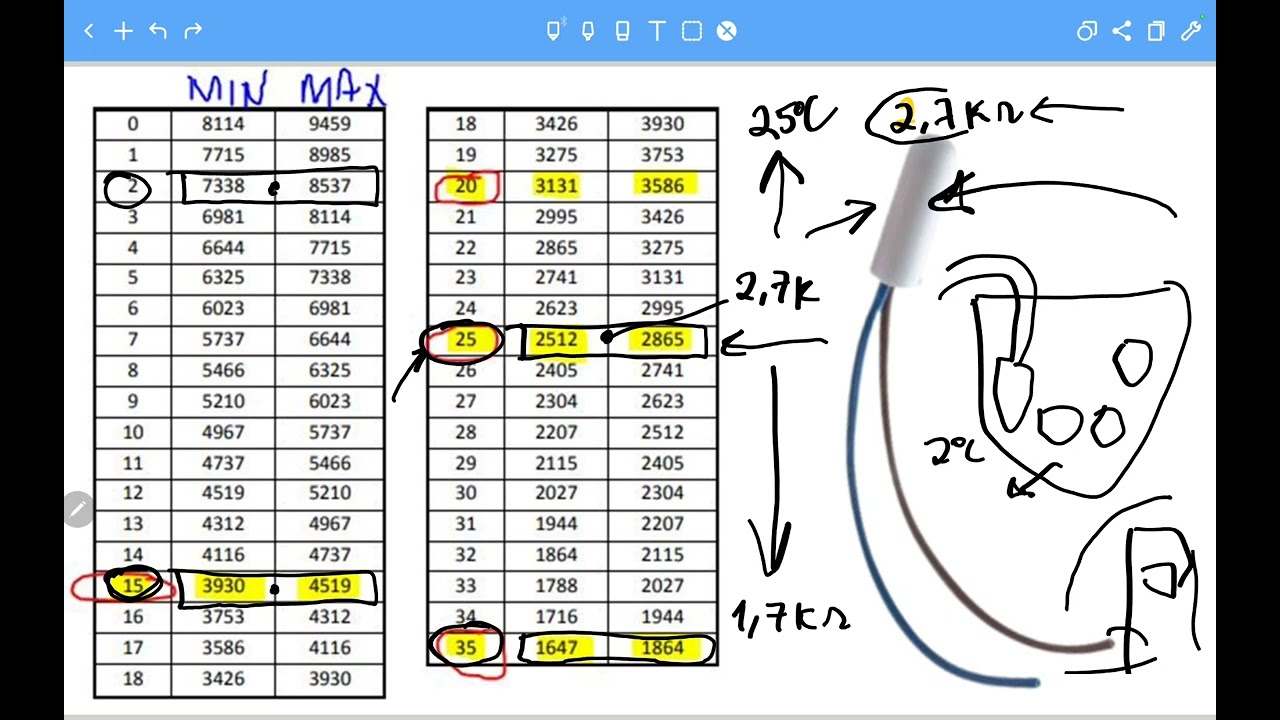 MIN MAX
0 8114 9459
1 7715 8985
2 7338 8537
3 6981 8114
4 6644 7715
5 6325 7338
6 6023 6981
7 5737 6644
8 5466 6325
9 5210 6023
10 4967 5737
11 4737 5466
12 4519 5210
13 4312 4967
14 4116 4737
15 3930 4519
16 3753 4312
17 3586 4116
18 3426 3930
18 3426 3930
19 3275 3753
20 3131 3586
21 2995 3426
22 2865 3275
23 2741 3131
24 2623 2995
25 2512 2865
26 2405 2741
27 2304 2623
28 2207 2512
29 2115 2405
30 2027 2304
31 1944 2207
32 1864 2115
33 1788 2027
34 1716 1944
35 1647 1864
25°C 2,7KΩ
2,7K
2°C
1,7KΩ